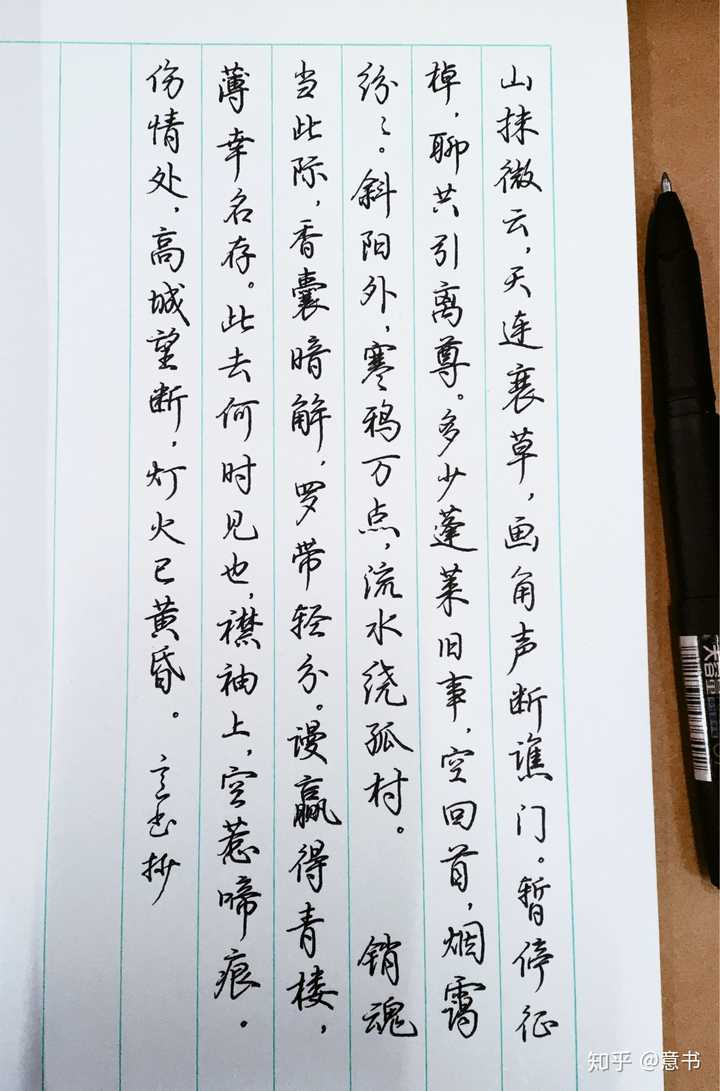 山抹微云，天连衰草，画角声断谯门。暂停征
棹，聊共引离尊。多少蓬莱旧事，空回首，烟霭
纷纷。斜阳外，寒鸦万点，流水绕孤村。 销魂
当此际，香囊暗解，罗带轻分。谩赢得青楼，
薄幸名存。此去何时见也，襟袖上，空惹啼痕。
伤情处，高城望断，灯火已黄昏。 意书抄
知乎 @意书